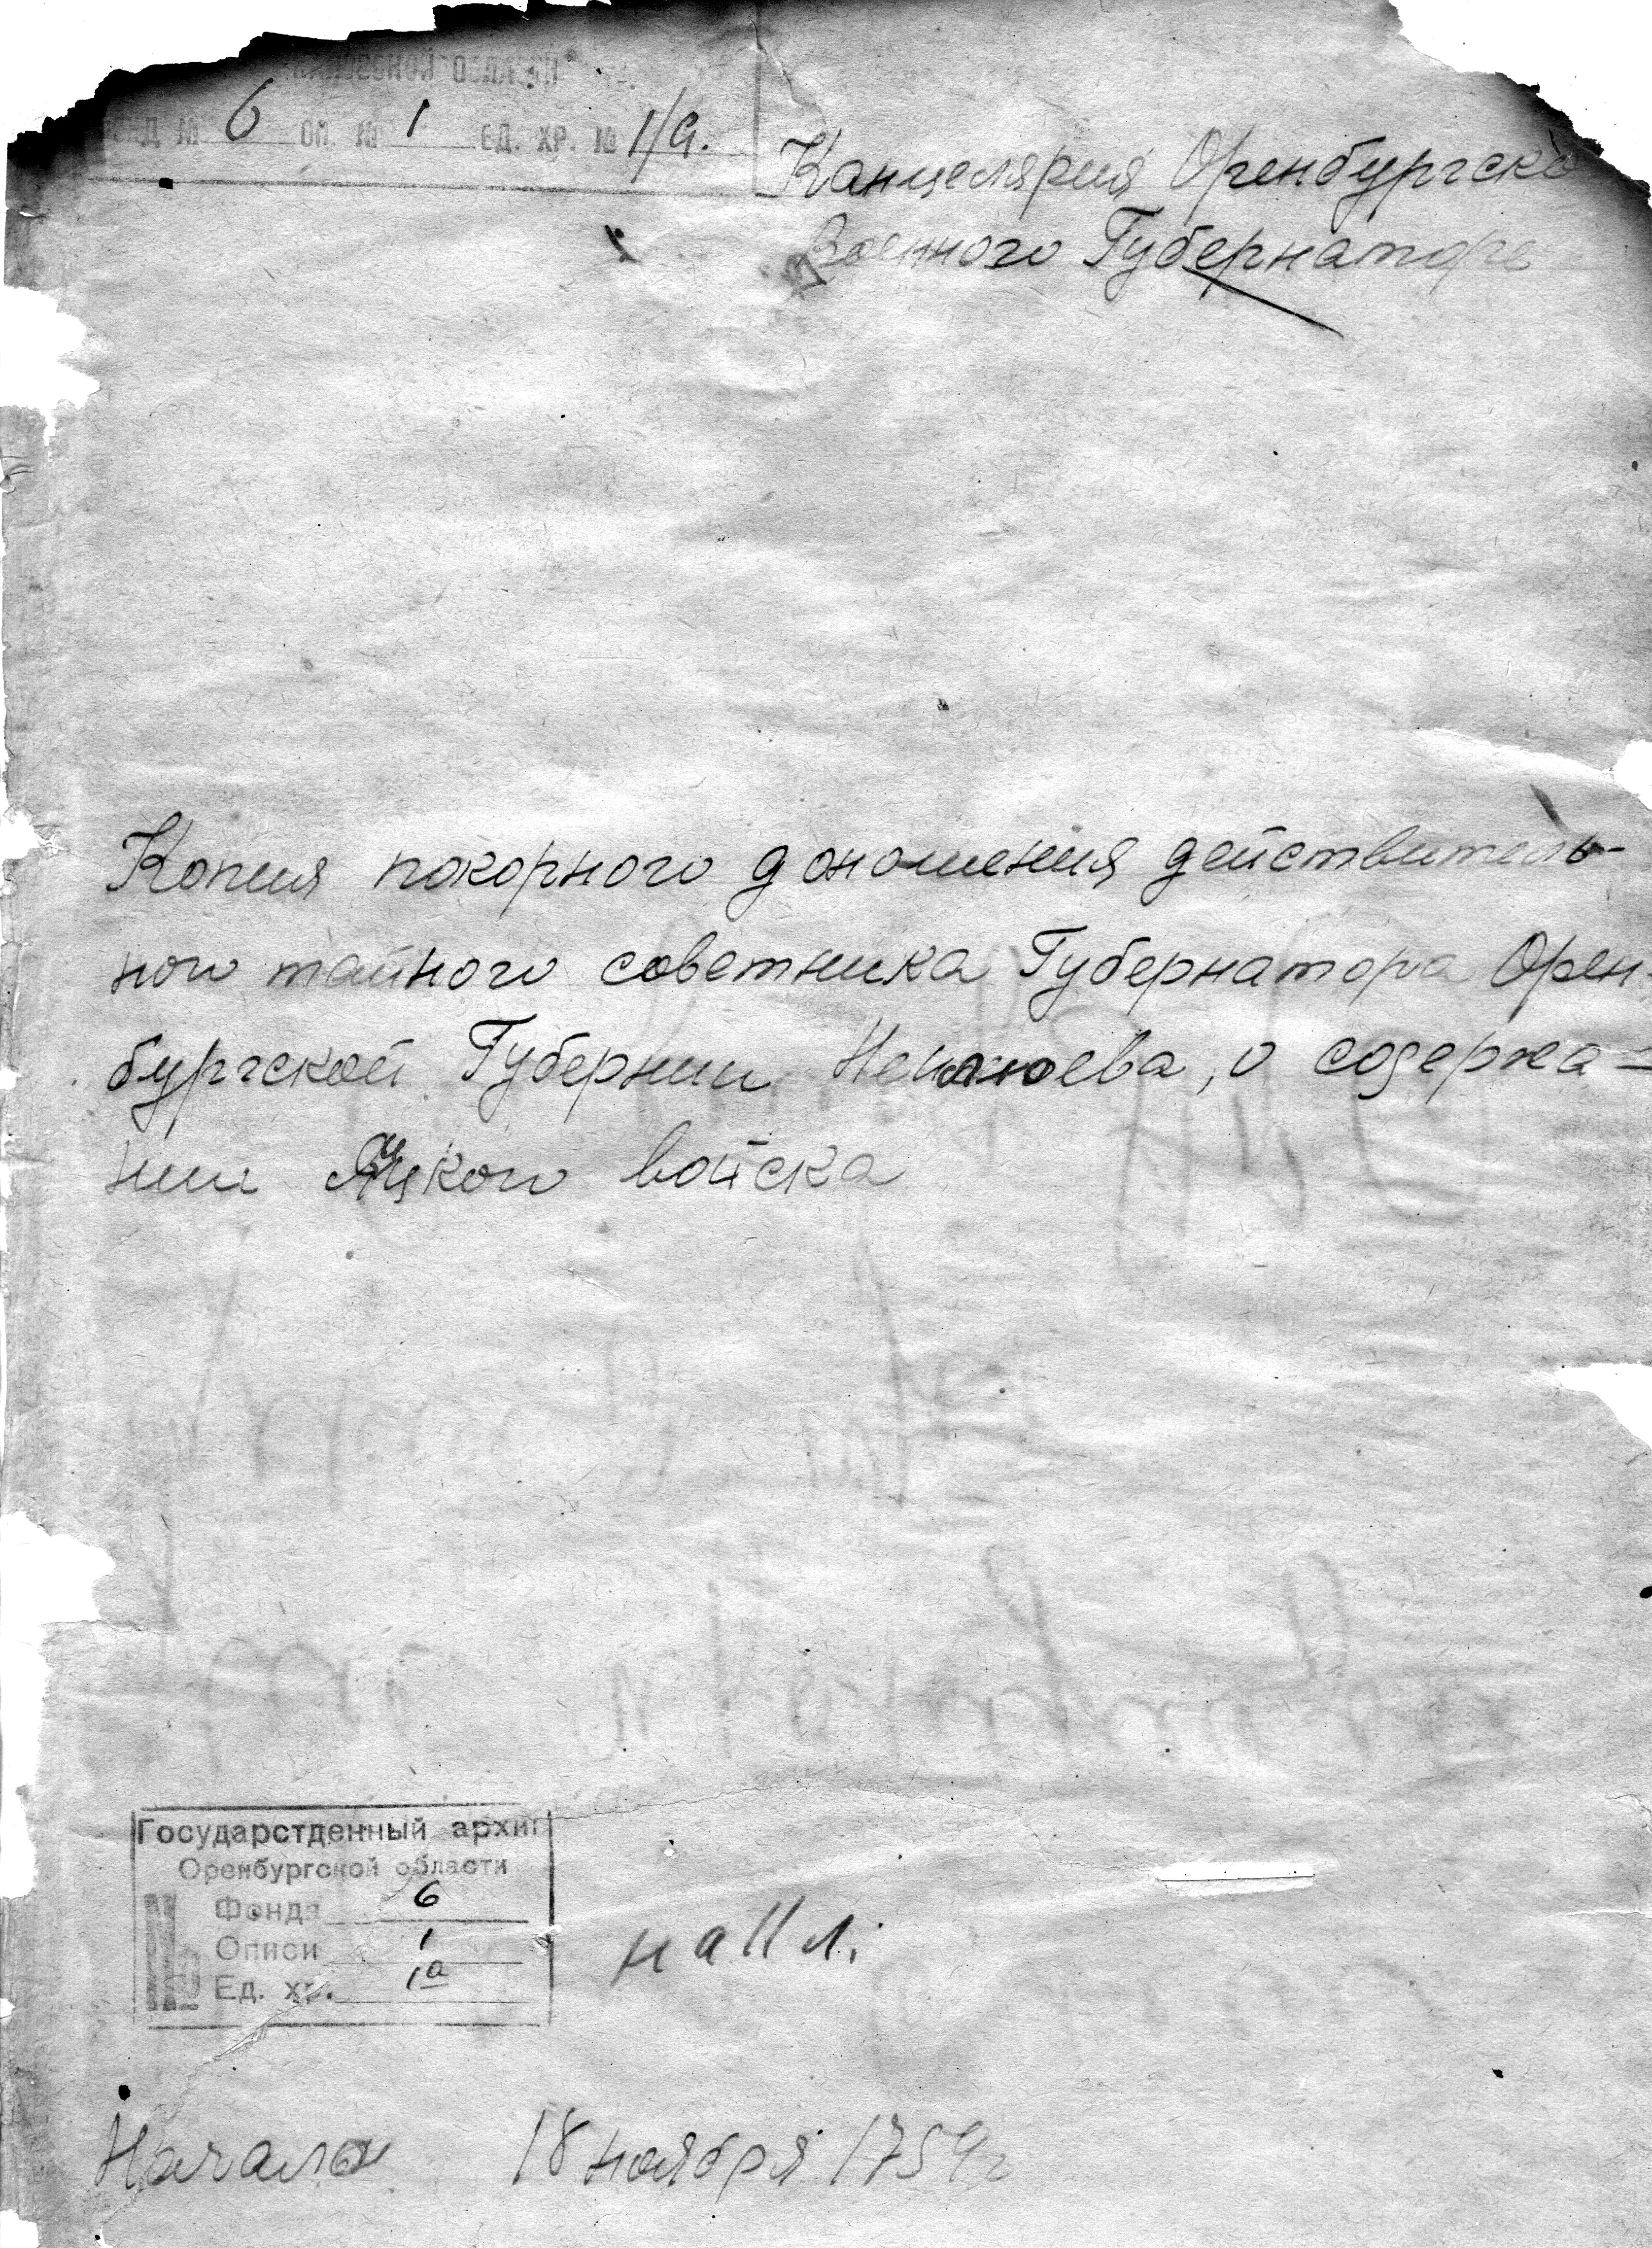 ОБЛАСТИ
ФОНД № 6 ОП. № 1 ЕД. ХР. № 1/а.
Канцелярия Оренбургско
Военного Губернатора
Копия покорного доношения действитель-
ного тайного советника Губернатора Орен
бургской Губернии Неплюева, о содержа=
нии Яицкого войска
Государстденный архив
Оренбургской области
№ Фонда 6
Описи 1
Ед. хр. 1а
на 11 л.
Начато 18 ноября 1754г